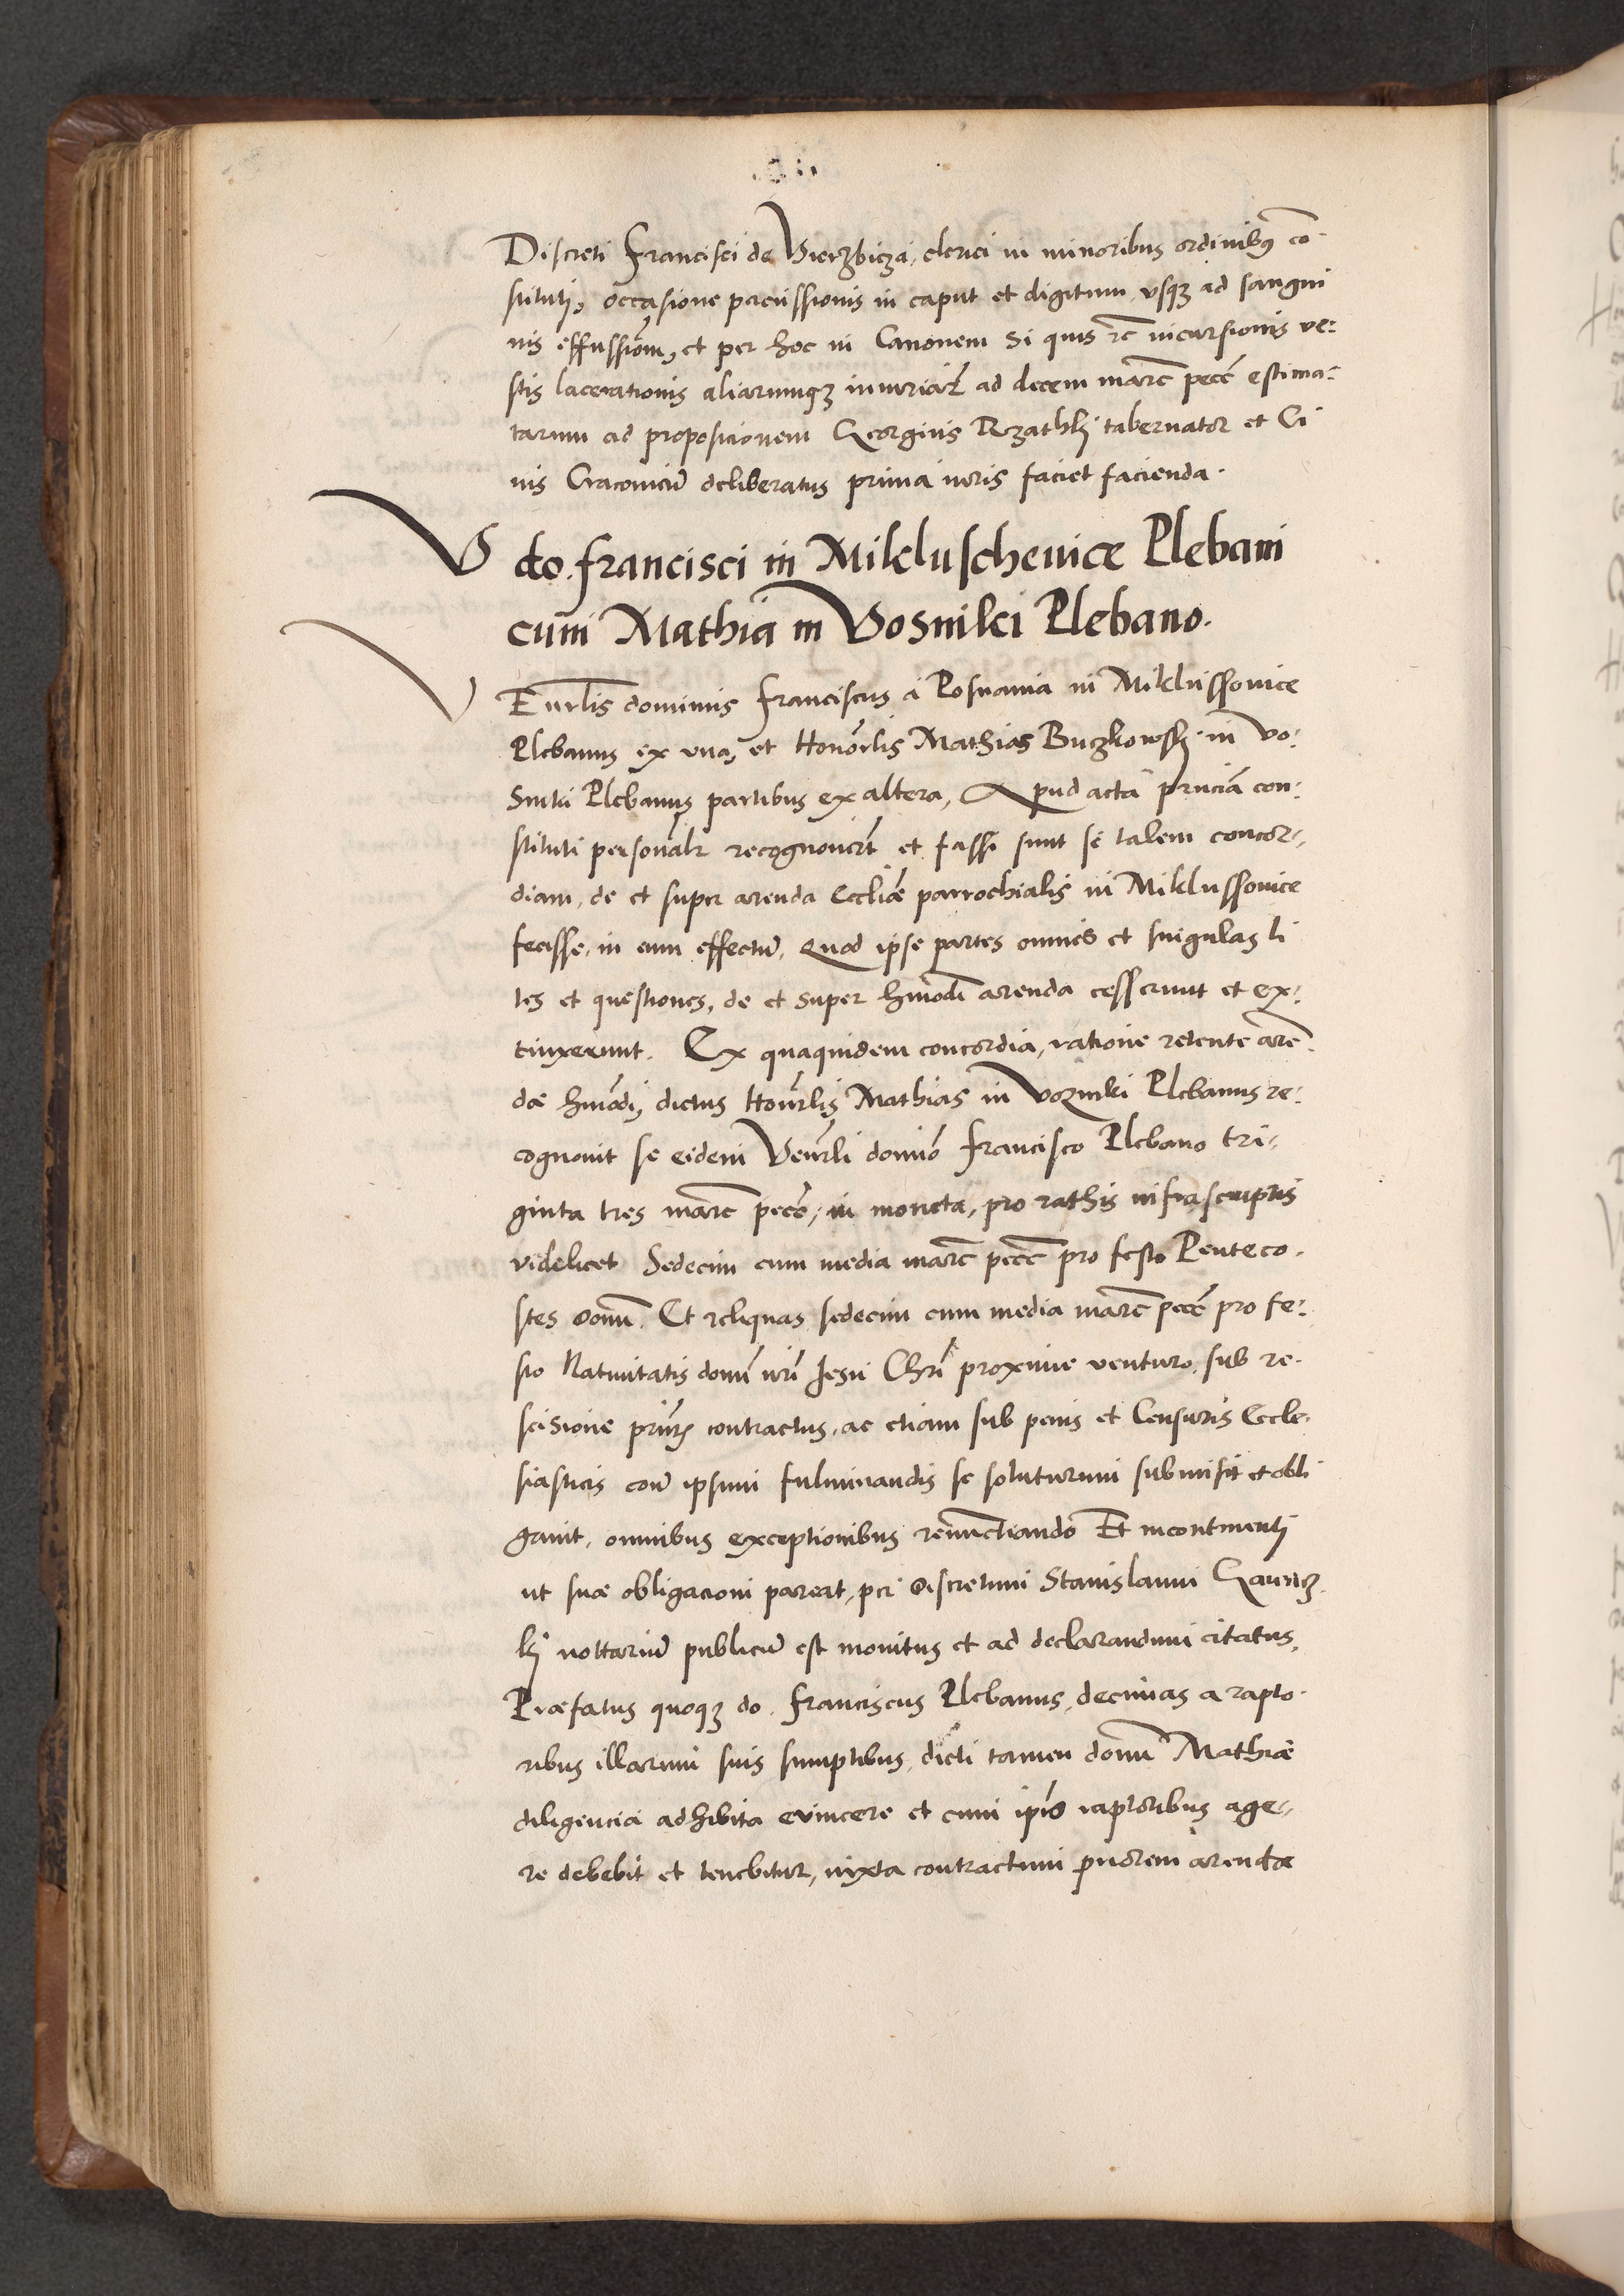 Discreti Francisci de Vierzbicza, clerici in minoribus ordinibꝰ co
stituti, occasione percussionis in caput et digitum, vsqꝫ ad sangui
nis effussiom̄, et per hoc in Canonem Si quis rc̄ incursionis ve:
stis lacerationis aliarumqꝫ iniuriaꝝ ad decem marc̄ pecc̄ estima:
tarum ad proposicionem Georgius Rzathkÿ tabernator et Ci
uis Cracouieñ deliberatus prima iuris faciet facienda.
V do. francisci in Mikluschevice Plebani
cum Mathia in Vosniki Plebano.
VEnr̄lis dominus Franciscus a Posnania in Miklussovice
Plebanus ex vna, et Honor̄lis Mathias Buczkowskÿ in Vo:
sniki Plebanus partibus ex altera, Apud acta pn̄ciā con:
stituti personalr̄ recognouert̄ et fassi sunt se talem concor,,
diam, de et super arenda Eccliæ parrochialis in Miklussovice
fecisse, in eum effectū, Quod ipse partes omnes et singulas li
tes et questiones, de et super hmōdi arenda cesserunt et ex:
tinxerunt. Ex quaquidem concordia, ratione retente arē
dæ hmōdi, dictus Honor̄lis Mathias in Vozniki Plebanus re:
cognouit se eidem Venr̄li domīo Francisco Plebano tri,,
ginta tres marc̄ pecc̄, in moneta, pro rathis infrascriptis
videlicet Sedecim cum media marc̄ pecc̄ pro festo Penteco.
stes Et reliquas sedecim cum media marc̄ pecc̄ pro fe:
sto Natiuitatis domī nrī Jesu Chrī proxime venturo, sub re.
scisione contractus, ac etiam sub penis et Censuris Eccle.
siasticis con̄ ipsum fulminandis se soluturum submisit et obli
gauit, omnibus exceptionibus renunctiando Et incontinenti
ut suæ obligacioni pareat, per Discretum Stanislaum
kÿ nottariū publicū est monitus et ad declarandum citatus,
Præfatus quoqꝫ do. Franciscus Plebanus, decimas a rapto.
ribus illarum suis sumptibus, dicti tamen domī Mathiæ
diligencia adhibita evincere et cum ip̄is raptoribus age,,
re debebit et tenebitur, iuxta contractum priorem arendæ